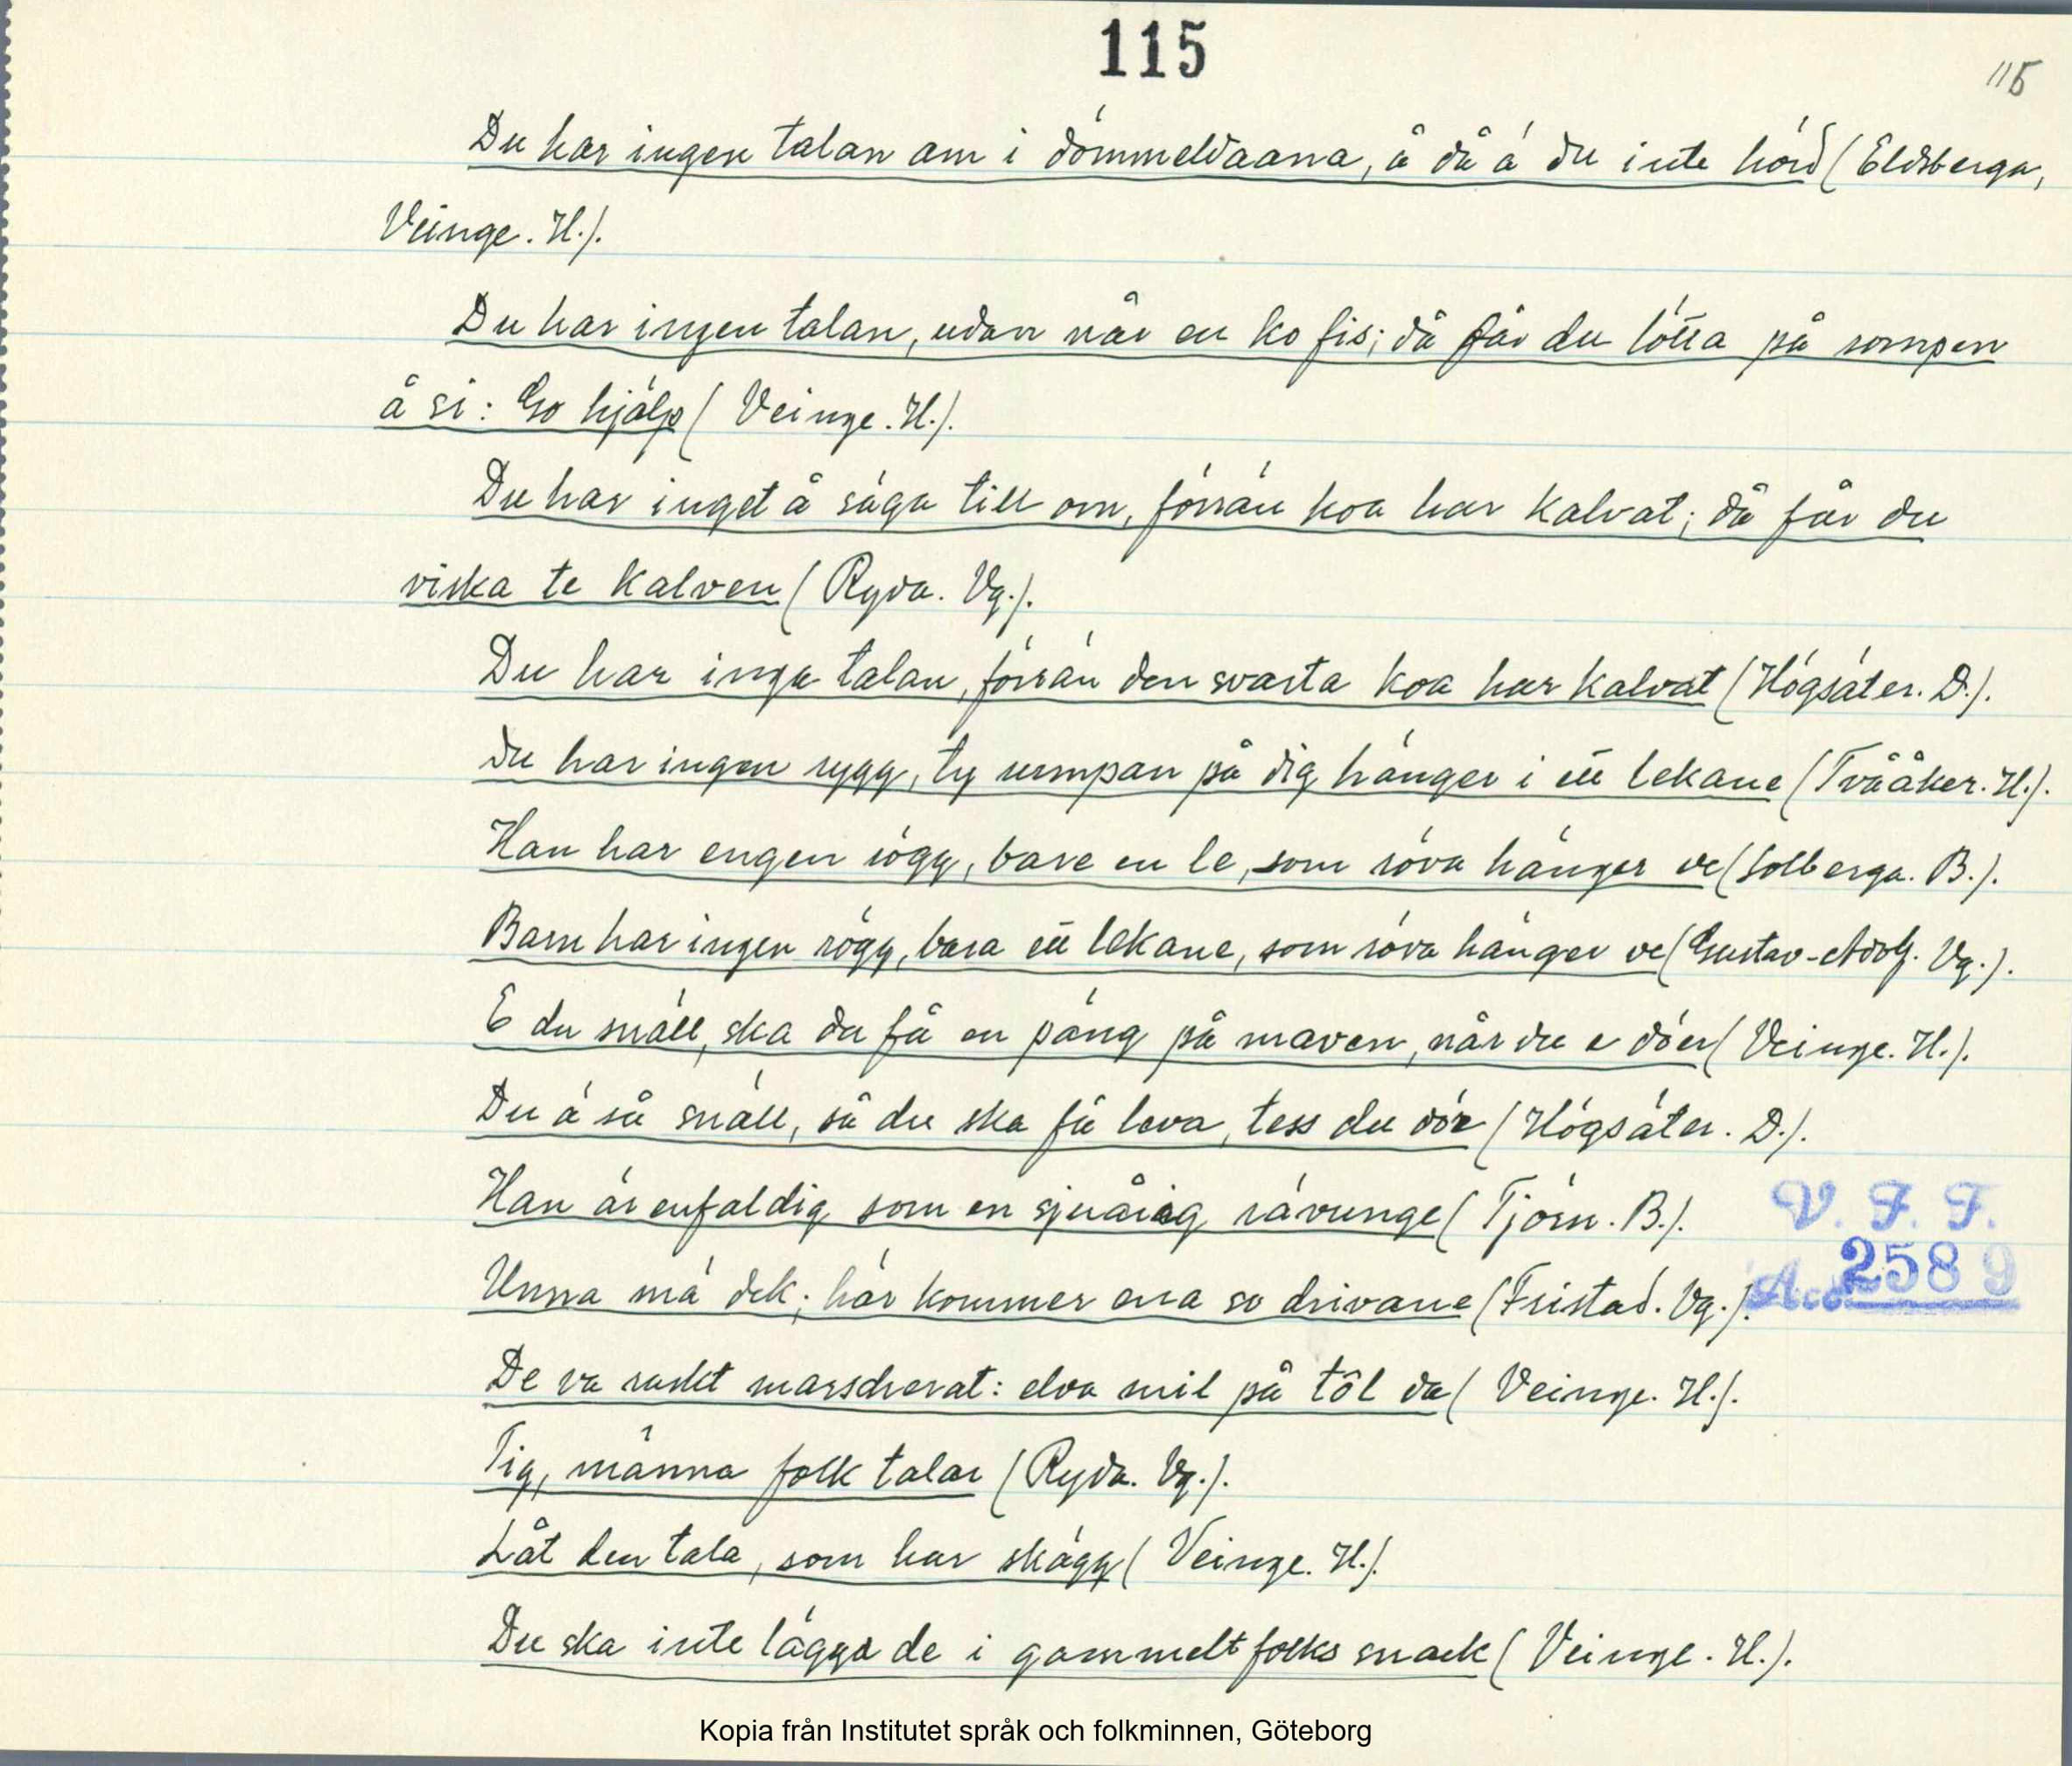 115
115
Du har ingen talan om i dömmeldaana, å då ä du inte hörd (Eldsberga,
Veinge. H.).
Du har ingen talan, udan när en ko fis; då får du lötta på rompen
å si: Go hjälp (Veinge. H.).
Du har inget å säga till om, förrän koa har kalvat; då får du
viska te kalven (Ryda. Vg.).
Du har inga talan, förrän den svarta koa har kalvat (Högsäter. D.).
Du har ingen rygg, ty rumpan på dig hänger i ett lekane (Tvååker. H.).
Han har engen rögg, bare en le, som röva hänger ve (Solberga. B.).
Barn har ingen rögg, bara ett lekane, som röva hänger ve (Gustav-Adolf. Vg.).
E du snäll, ska du få en päng på maven, når du e döer (Veinge. H.).
Du ä så snäll, så du ska få leva, tess du dör (Högsäter. D.).
Han är enfaldig som en sjuårig rävunge (Tjörn. B.).
Unna mä dek; här kommer ena so drivane (Fristad. Vg.).
De va raskt marscherat: elva mil på tôl da (Veinge. H.).
Tig, männa folk talar (Ryda. Vg.).
Låt den tala, som har skägg (Veinge. H.).
Du ska inte lägga de i gammelt folks snack (Veinge. H.).
V. F. F.
Acc. 2589
Kopia från Institutet språk och folkminnen, Göteborg